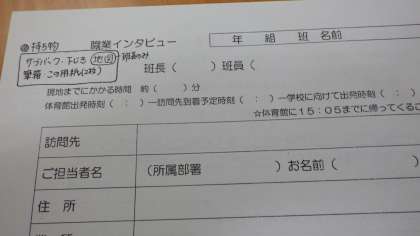 持ち物　職業インタビュー
年　組　班　名前
サブバック・下じき 地図 班長のみ
筆箱・この用紙(2枚)
班長（　　　）班員（
現地までにかかる時間　約（　　）分
体育館出発時刻（　：　）→訪問先到着予定時刻（　：　）→学校に向けて出発時刻（　：　）
☆体育館に１５：０５までに帰ってくるこ
訪問先
ご担当者名　（所属部署　　　　　）お名前（　　　　）
住　所